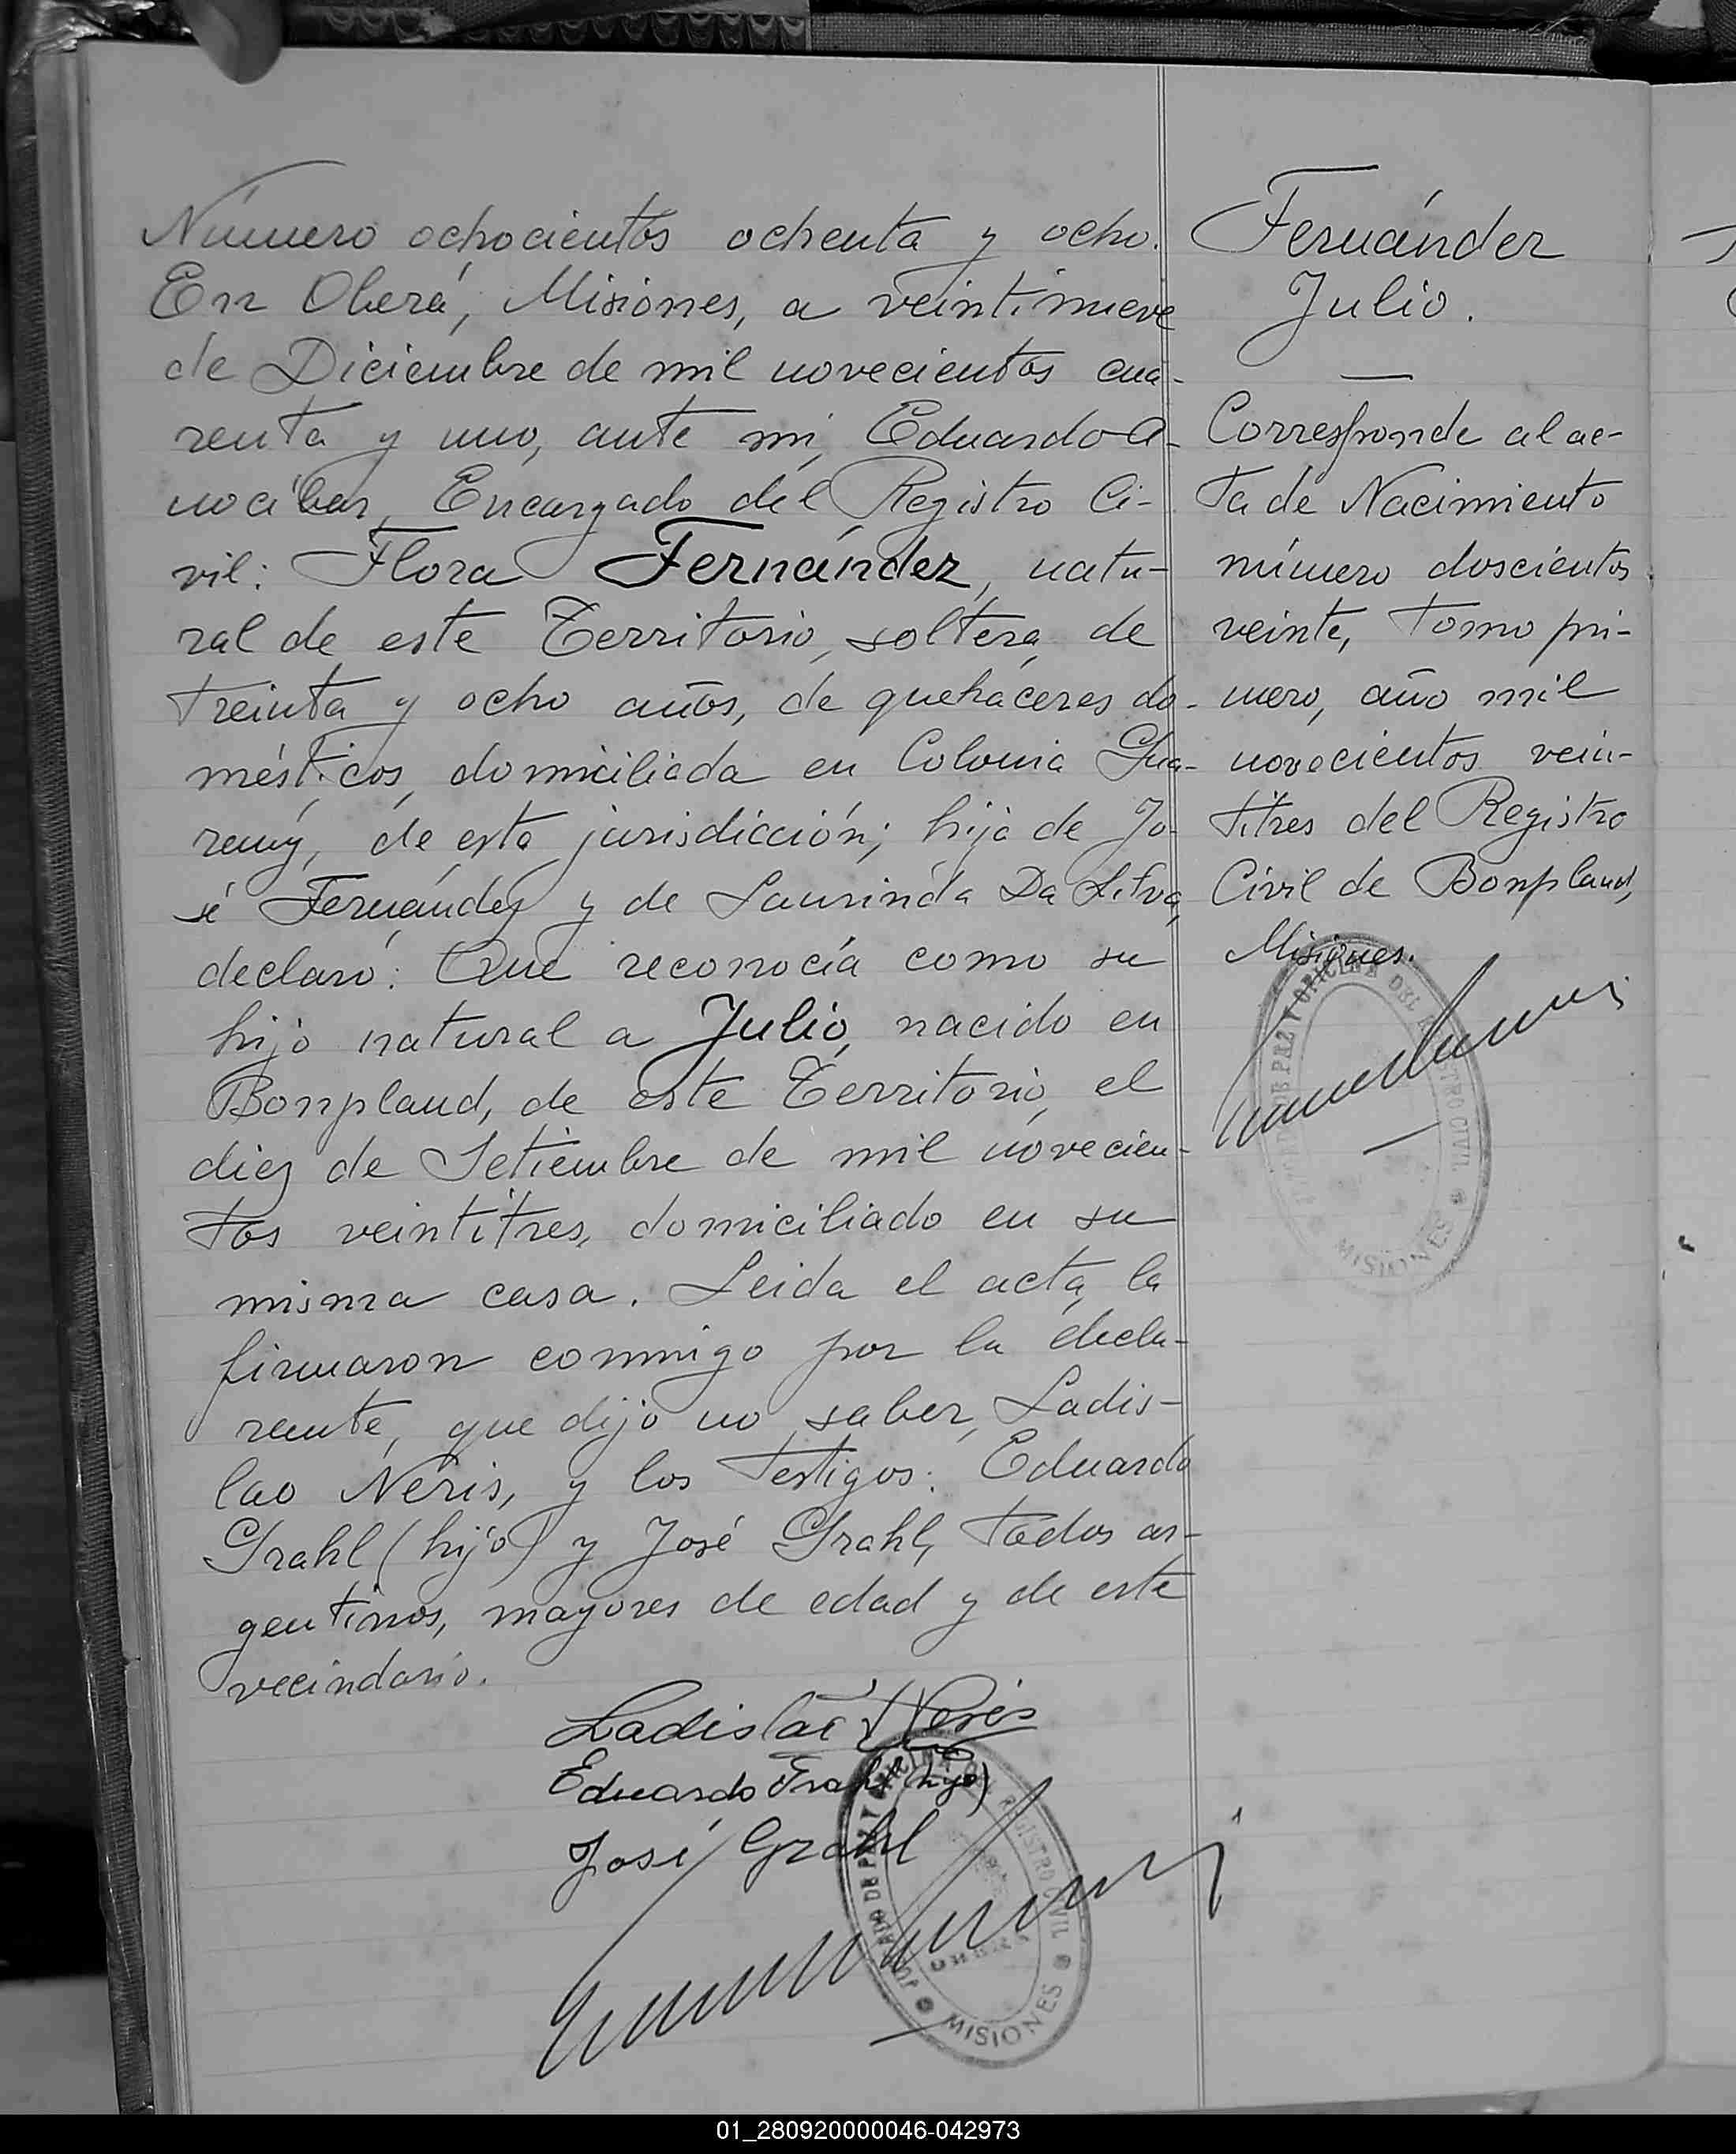 Número ochocientos ochenta y ocho.
En Oberá, Misiones, a veintinueve
de Diciembre de mil novecientos cua-
renta y uno, ante mi, Eduardo A-
nocíbar, Encargado del Registro Ci-
vil: Flora Fernández, natu-
ral de este Territorio, soltera, de
treinta y ocho años, de quehaceres do-
mésticos, domiciliada en Colonia Gua-
remy, de esta jurisdicción; hija de Jo-
sé Fernández y de Laurinda Da Silva,
declaró: Que reconocía como su
hijo natural a Julio, nacido en
Bonpland, de este Territorio, el
diez de Setiembre de mil novecien-
tos veintitres, domiciliado en su
misma casa. Leida el acta, la
firmaron conmigo por la decla-
rante, que dijo no saber, Ladis-
lao Neris, y los testigos: Eduardo
Grahl (hijo) y José Grahl, todos ar-
gentinos, mayores de edad y de este
vecindario.
Ladislao Neris
Eduardo Grahl (hijo)
José Grahl
JUZGADO DE PAZ Y OFICINA DEL REGISTRO CIVIL
MISIONES
Fernández
Julio.
Corresponde al ac-
ta de Nacimiento
número doscientos
veinte, tomo pri-
mero, año mil
novecientos vein-
titres del Registro
Civil de Bonpland,
Misiones.
JUZGADO DE PAZ Y OFICINA DEL REGISTRO CIVIL
MISIONES
01_280920000046-042973